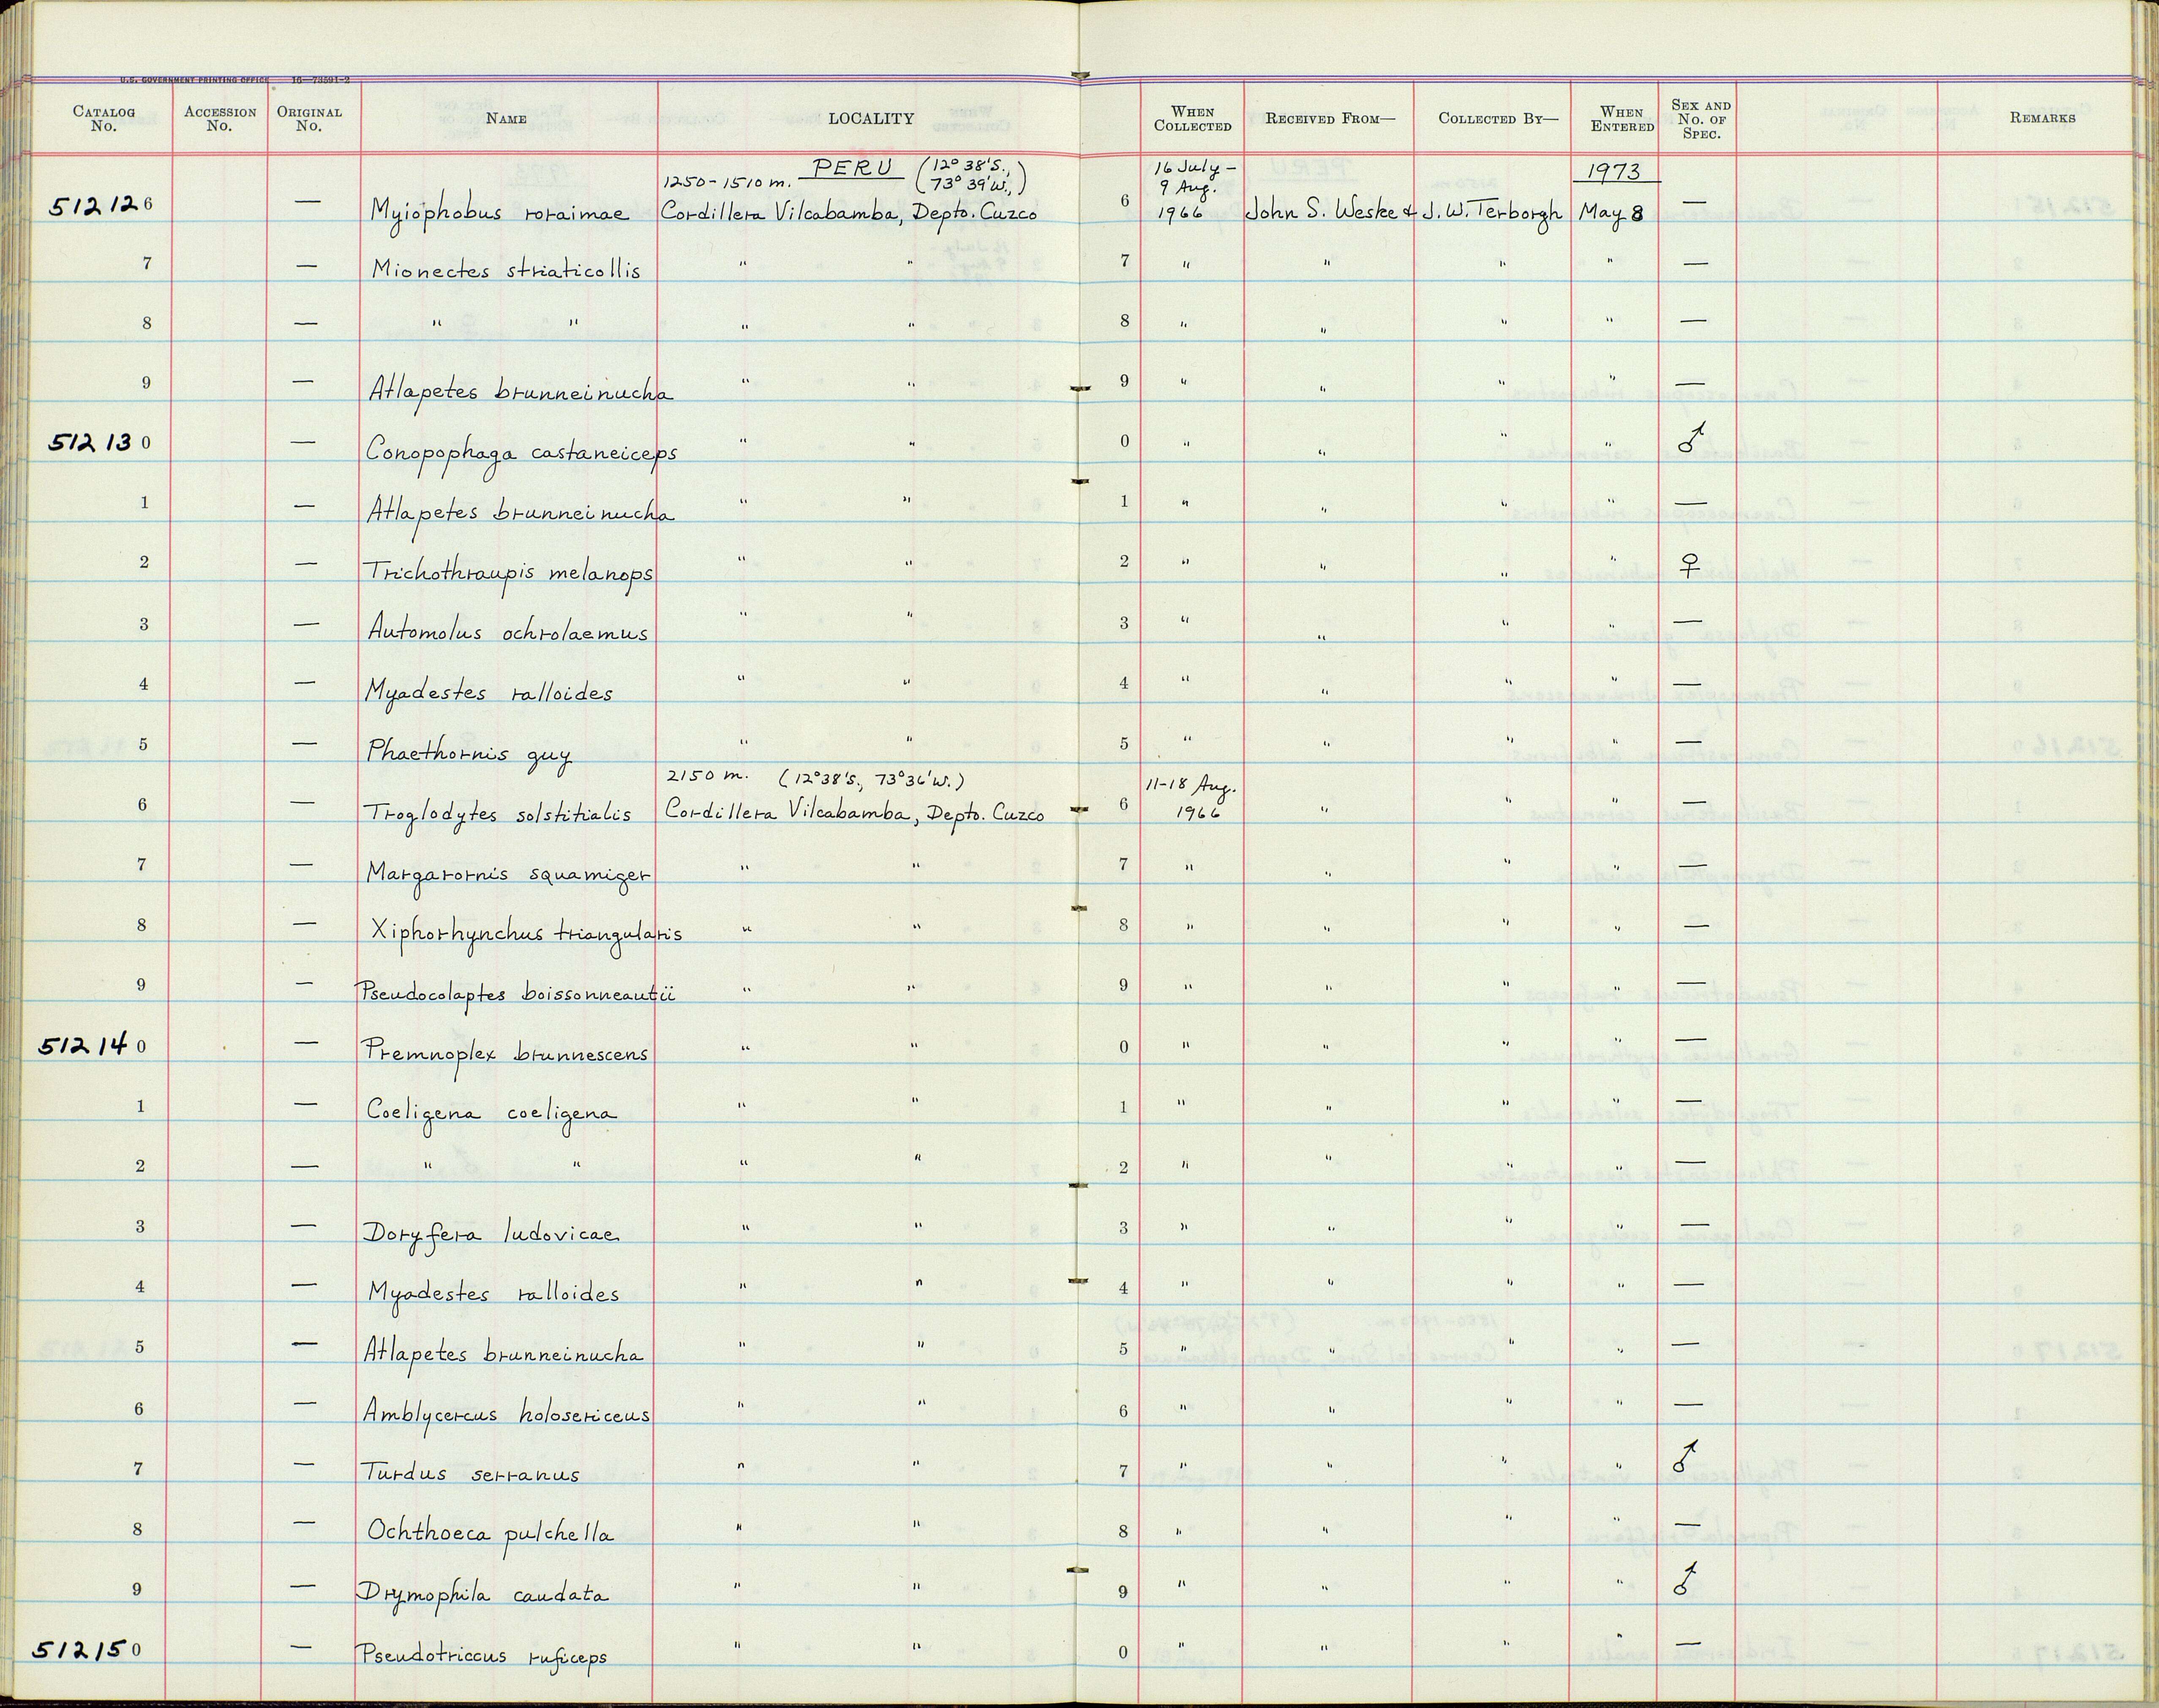 U.S. GOVERNMENT PRINTING OFFICE 16—73591-2
CATALOG No. ACCESSION No. ORIGINAL No. NAME LOCALITY WHEN COLLECTED RECEIVED FROM— COLLECTED BY— WHEN ENTERED SEX AND No. OF SPEC. REMARKS
PERU (12° 38'S., 73° 39'W.,) 16 July – 9 Aug. 1973
1250-1510 m.
512126 — Myiophobus roraimae Cordillera Vilcabamba, Depto. Cuzco 6 1966 John S. Weske & J. W. Terborgh May 8 —
7 — Mionectes striaticollis " " 7 " " " " —
8 — " " " " 8 " " " " —
9 — Atlapetes brunneinucha " " 9 " " " " —
512130 — Conopophaga castaneiceps " " 0 " " " " ♂
1 — Atlapetes brunneinucha " " 1 " " " " —
2 — Trichothraupis melanops " " 2 " " " " ♀
3 — Automolus ochrolaemus " " 3 " " " " —
4 — Myadestes ralloides " " 4 " " " " —
5 — Phaethornis guy " " 5 " " " " —
2150 m. (12°38'S., 73°36'W.) 11-18 Aug.
6 — Troglodytes solstitialis Cordillera Vilcabamba, Depto. Cuzco 6 1966 " " " —
7 — Margarornis squamiger " " 7 " " " " —
8 — Xiphorhynchus triangularis " " 8 " " " " —
9 — Pseudocolaptes boissonneautii " " 9 " " " " —
512140 — Premnoplex brunnescens " " 0 " " " " —
1 — Coeligena coeligena " " 1 " " " " —
2 — " " " " 2 " " " " —
3 — Doryfera ludovicae " " 3 " " " " —
4 — Myadestes ralloides " " 4 " " " " —
5 — Atlapetes brunneinucha " " 5 " " " " —
6 — Amblycercus holosericeus " " 6 " " " " —
7 — Turdus serranus " " 7 " " " " ♂
8 — Ochthoeca pulchella " " 8 " " " " —
9 — Drymophila caudata " " 9 " " " " ♂
512150 — Pseudotriccus ruficeps " " 0 " " " " —